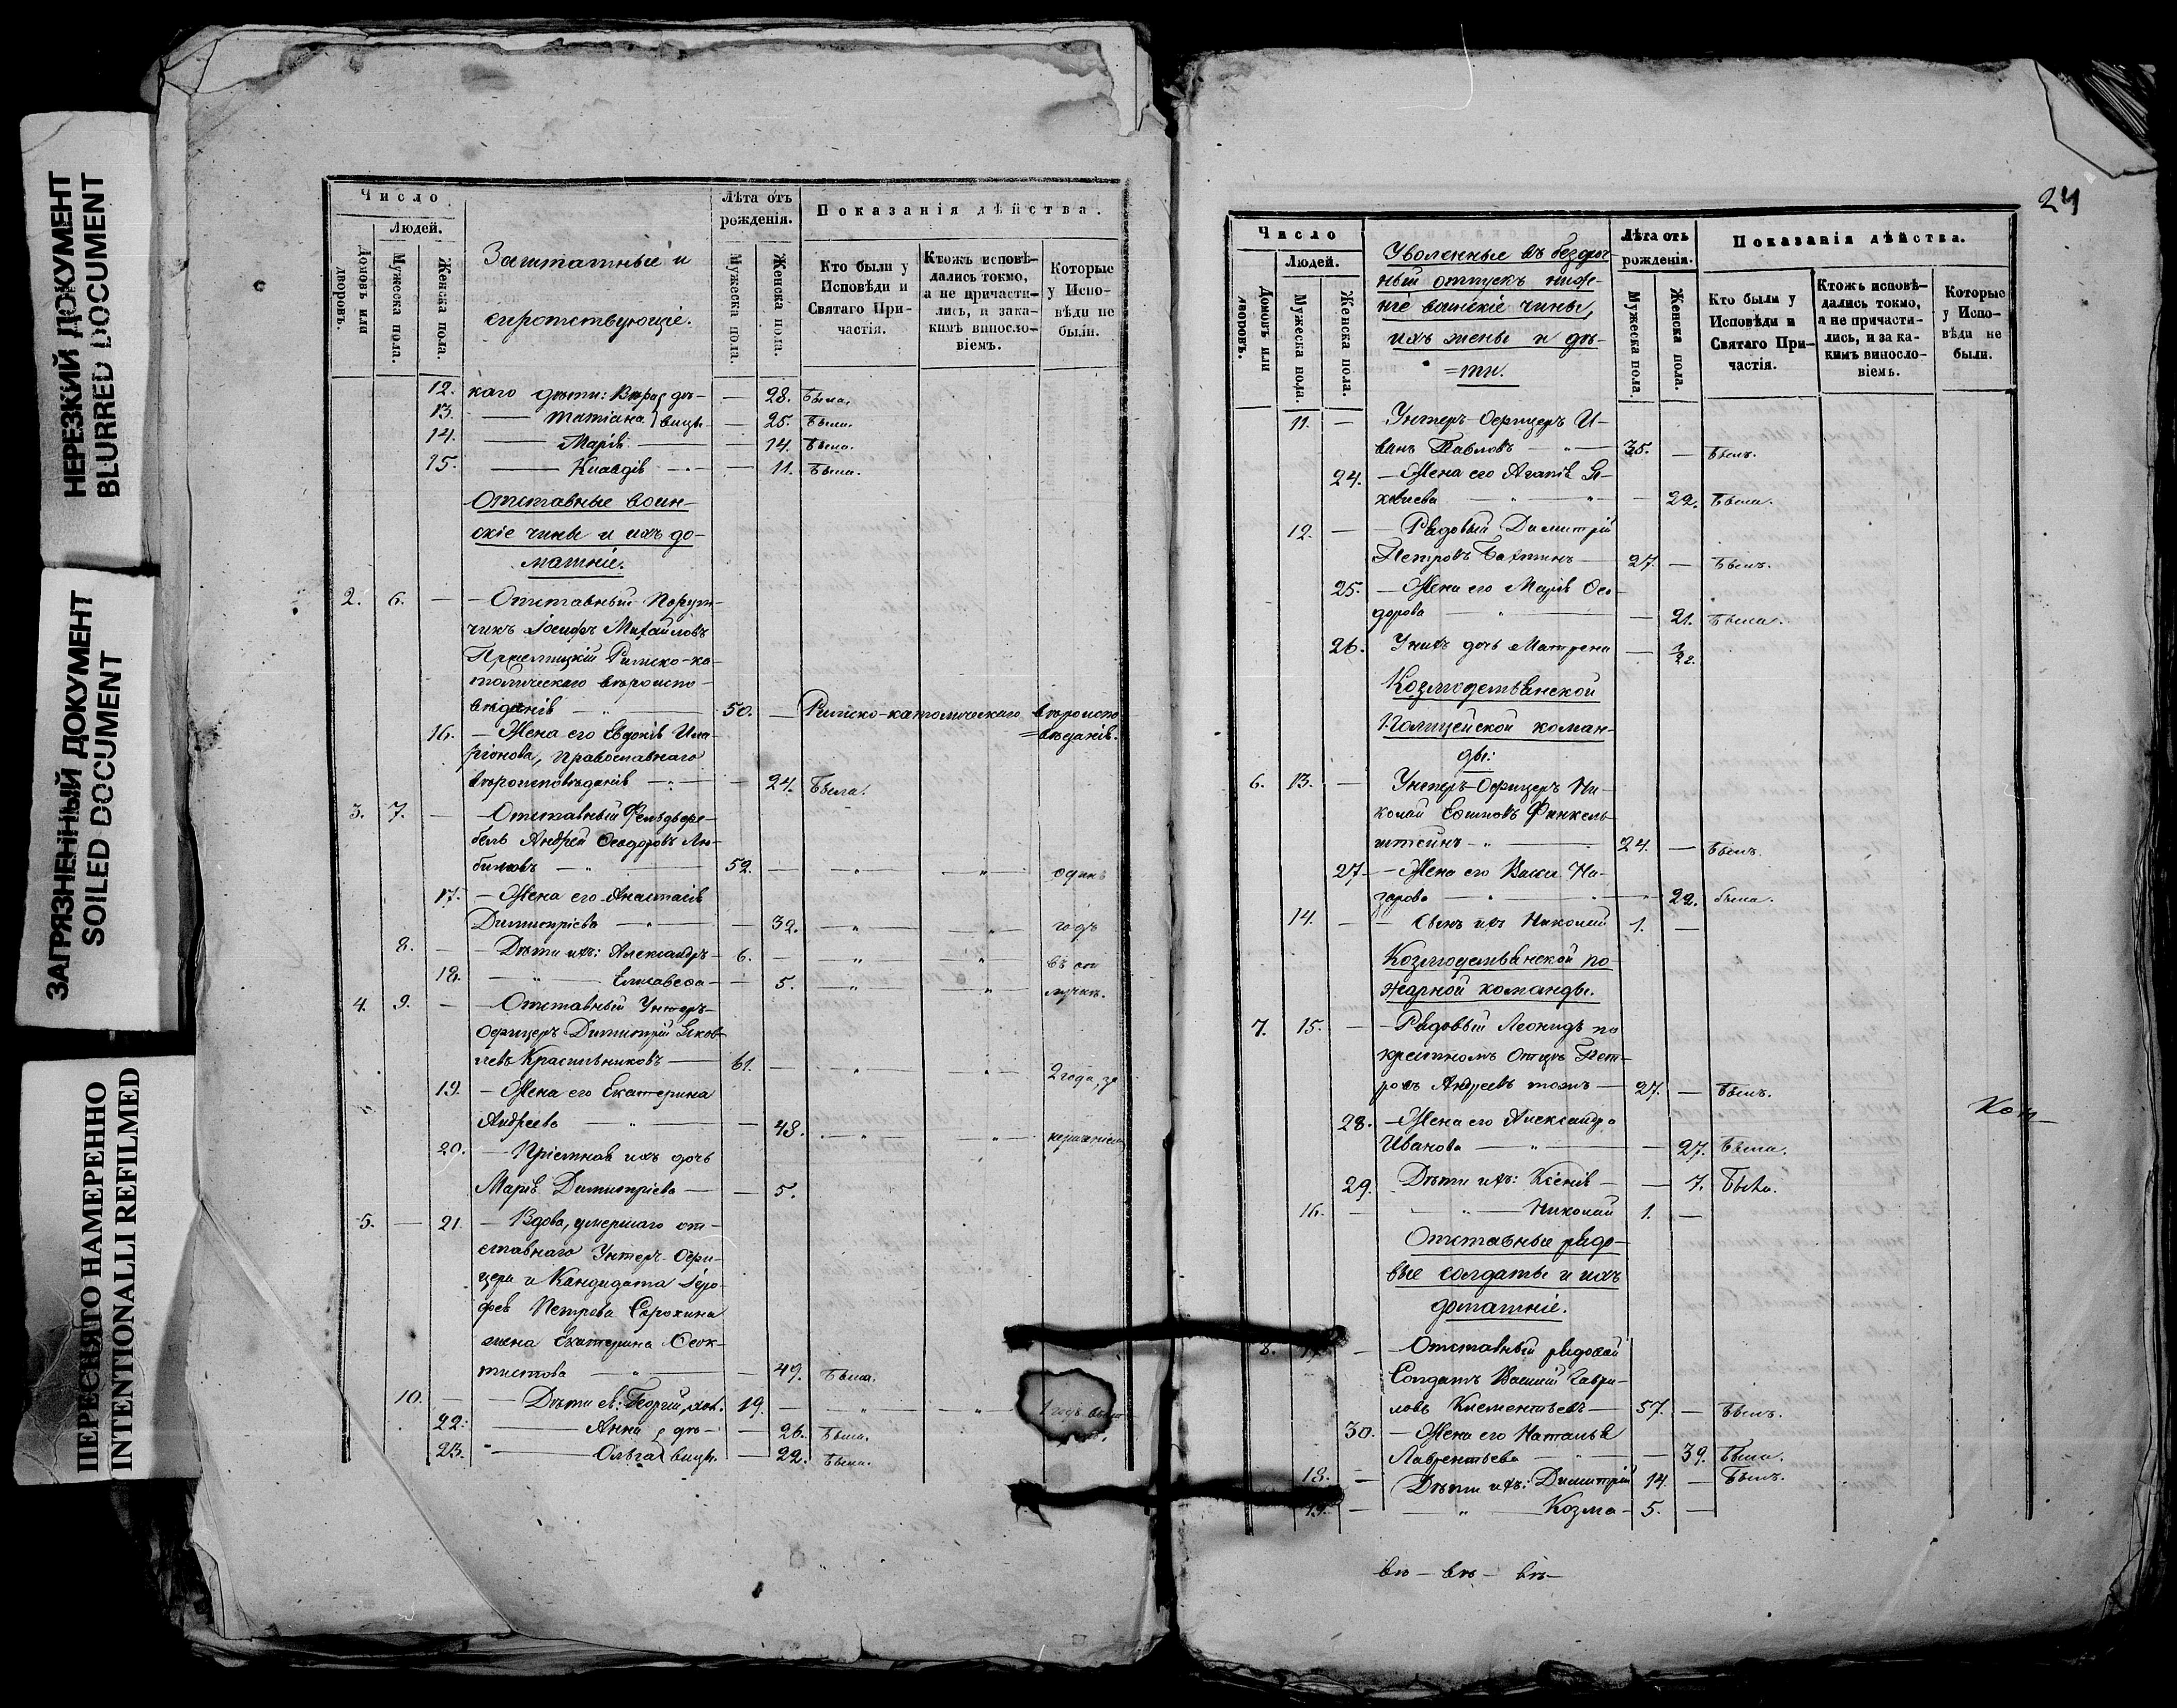 НЕРЕЗКИЙ ДОКУМЕНТ
BLURRED DOCUMENT
ЗАГРЯЗНЕННЫЙ ДОКУМЕНТ
SOILED DOCUMENT
ПЕРЕСНЯТО НАМЕРЕННО
INTENTIONALLI REFILMED
Число
Людей.
Домовъ или дворовъ.
Мужеска пола.
Женска пола.
Заштатные и
сиротствующіе.
Лѣта отъ рожденія.
Мужеска пола.
Женска пола.
Показанія дѣйства.
Кто были у Исповѣди и Святаго Причастія.
Ктожъ исповѣдались токмо, а не причастились, и за какимъ винословіемъ.
Которые у Исповѣди не были.
12. каго дѣти: Вѣра дѣ- — 28. Была.
13. — Татіана вицы — 25. Была.
14. — Марія — 14. Была.
15. — Клавдія — 11. Была.
Отставные воин-
скіе чины и ихъ до-
машніе.
2. 6. — Отставный Пору-
чикъ Іосифъ Михайловъ
Римско-ка-
толическаго вѣроиспо-
вѣданія 50. — Римско-католическаго вѣроиспо
=вѣданія.
16. — Жена его Евдокія Ила-
ріонова, православнаго
вѣроисповѣданія — 24. Была.
3. 7. — Отставный Фельдфе-
бель Андрей Ѳеодоровъ Лю-
бимовъ 52. — " — " — одинъ
17. — Жена его Анастасія
Димитріева — 32. — " — " — годъ
8. — Дѣти ихъ: Александръ — 6. — " — " — въ от
18. — " — Елисавета — 5. — " — " — лучкѣ.
4. 9. — Отставный Унтеръ-
Офицеръ Димитрій Яков-
левъ Красильниковъ — 61. — " — " — 2 года, за
19. — Жена его Екатерина
Андреева — " — 48. — " — " —
20. — Пріемная ихъ дочь
Марія Димитріева — 5.
5. — 21. — Вдова, умершаго от-
ставнаго Унтеръ-Офи-
цера и Кандидата Іеро-
фея Петрова Сорокина
жена Екатерина Ѳеок-
тистова — " — 49. Была.
10. — Дѣти ея: Георгій, хол. 19. — " — " — 1 годъ
22. — Анна дѣ- — 26. Была.
23. " — Ольга вицы — 22. Была.
24
Число
Людей.
Домовъ или дворовъ.
Мужеска пола.
Женска пола.
Уволенные въ безсроч-
ный отпускъ ниж-
ніе воинскіе чины,
ихъ жены и дѣ-
=ти.
Лѣта отъ рожденія.
Мужеска пола.
Женска пола.
Показанія дѣйства.
Кто были у Исповѣди и Святаго Причастія.
Ктожъ исповѣдались токмо, а не причастились, и за какимъ винословіемъ.
Которые у Исповѣди не были.
11. — Унтеръ-Офицеръ И-
ванъ Павловъ — " — 35. — Былъ.
24. — Жена его Агапія Я-
ковлева — " — " — 22. Была.
12. — — Рядовый Димитрій
Петровъ Бахтинъ — 27. — Былъ.
25. — Жена его Марія Ѳео-
дорова — " — 21. Была.
26. У нихъ дочь Матрена — 1/2 г.
Козмодемьянской
полицейской коман-
ды:
6. 13. — Унтеръ-Офицеръ Ни-
колай Ефимовъ Финкель-
штейнъ — " — 24. — Былъ.
27. — Жена его Васса На-
зарова — " — 22. была.
14. — — Сынъ ихъ Николай 1. —
Козмодемьянской по-
жарной команды.
7. 15. — — Рядовый Леонидъ по
крестномъ Отцѣ Пет-
ровъ Андреевъ тожъ — 27. — Былъ.
28. — Жена его Александра
Иванова — " — 27. Была.
29. Дѣти ихъ: Ксенія — 7. Была.
16. — " — Николай 1. —
Отставные рядо-
вые солдаты и ихъ
домашніе.
8. 17. — — Отставный рядовой
Солдатъ Василій Гаври-
ловъ Климентьевъ — 57. — Былъ.
30. — Жена его Наталья
Лаврентьева — " — 39. Была.
18. — Дѣти ихъ: Димитрій 14. — Былъ.
19. — " — Козма — 5. —